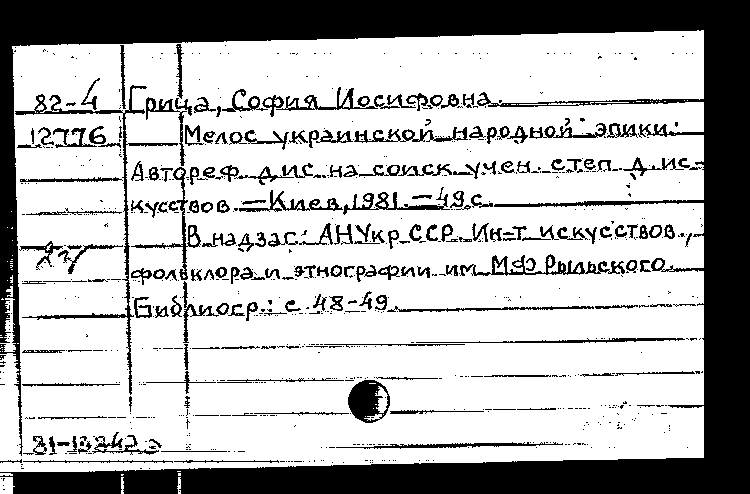 82-4 Грица, София Иосифовна.
12776 Мелос украинской народной эпики:
Автореф. дис. на соиск. учен. степ. д. ис-
кусствов. — Киев, 1981. — 49 с.
В надзаг: АН Укр ССР. Ин-т искусствов.,
фольклора и этнографии им. М Ф Рыльского.
Библиогр.: с. 48-49.